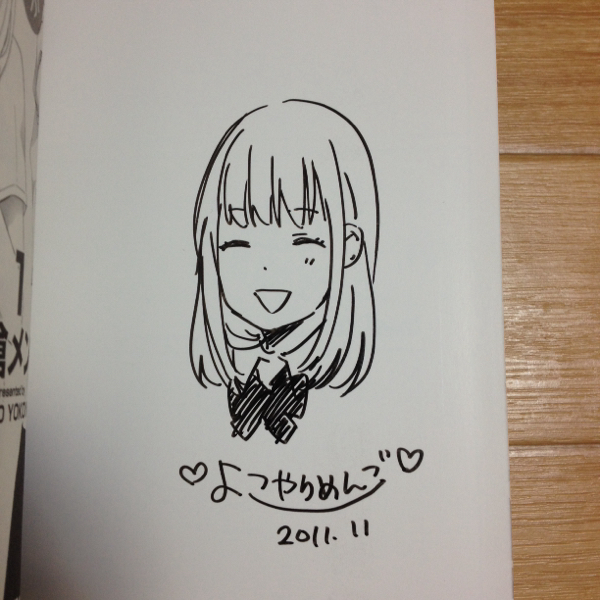 1
presented by
O YOKO
♡よこやりめんご♡
2011.11